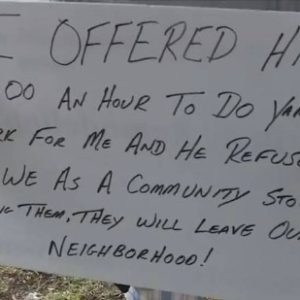 I OFFERED H
00 AN HOUR TO DO YAR
RK FOR ME AND HE REFUSE
WE AS A COMMUNITY STO
NG THEM, THEY WILL LEAVE OU
NEIGHBORHOOD!